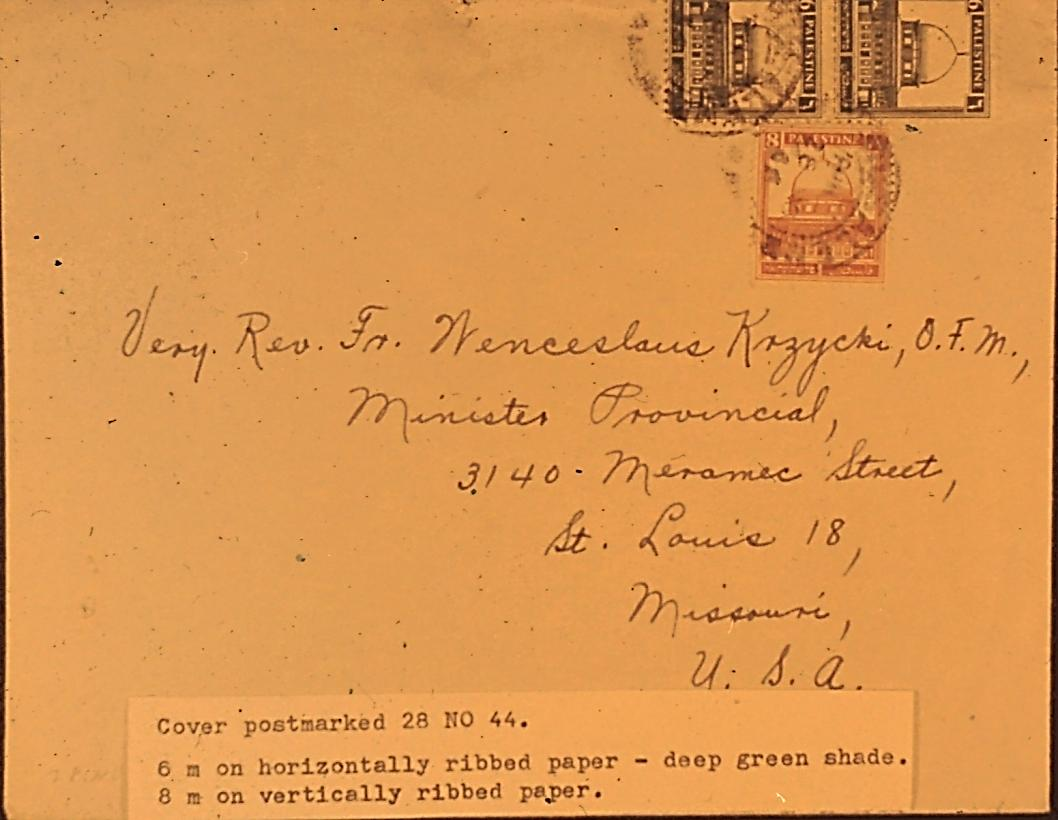 6 PALESTINE
6 PALESTINE
8 PALESTINE
Very. Rev. Fr. Wenceslaus Krzycki, O.F.M.,
Minister Provincial,
3140 · Meramec Street,
St. Louis 18,
Missouri,
U. S. A.
Cover postmarked 28 NO 44.
6 m on horizontally ribbed paper - deep green shade.
8 m on vertically ribbed paper.